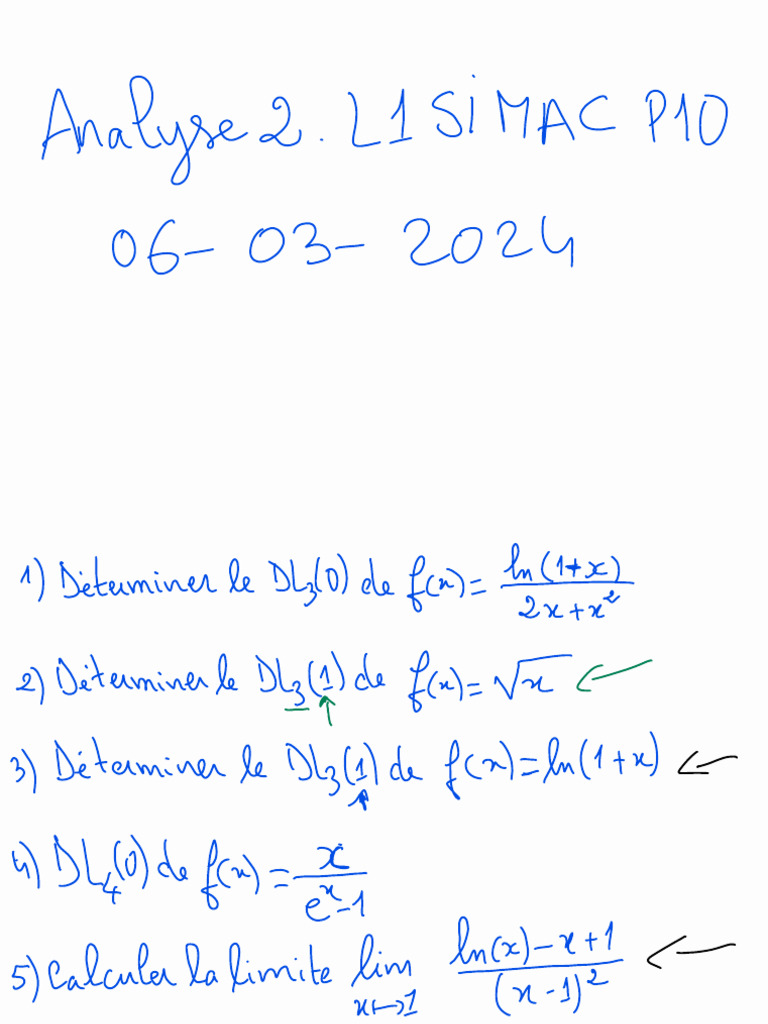 Analyse 2. L1 SiMAC P10
06-03-2024
1) Déterminer le DL₃(0) de f(x) = ln(1+x) / (2x+x²)
2) Déterminer le DL₃(1) de f(x) = √x ←
↑
3) Déterminer le DL₃(1) de f(x) = ln(1+x) ←
↑
4) DL₄(0) de f(x) = x / (eˣ-1)
5) Calculer la limite lim x↦1 (ln(x) - x + 1) / (x-1)² ←